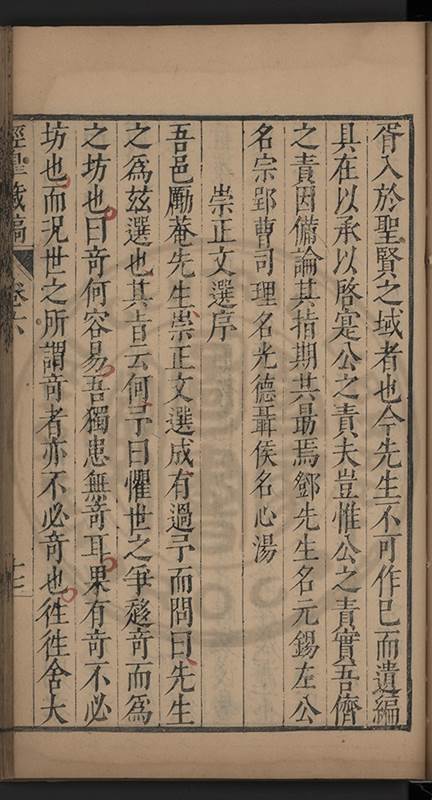 胥入於聖賢之域者也今先生不可作已而遺編
具在以承以啓寔公之責夫豈惟公之責實吾儕
之責因備論其指期共朂焉鄧先生名元錫左公
名宗郢曹司理名光德聶侯名心湯
崇正文選序
吾邑勵菴先生崇正文選成有過予而問曰先生
之爲兹選也其旨云何予曰懼世之爭趍奇而爲
之坊也曰奇何容易吾獨患無奇耳果有奇不必
坊也而況世之所謂奇者亦不必奇也徃徃舍大
經臯藏稿
卷六
十二